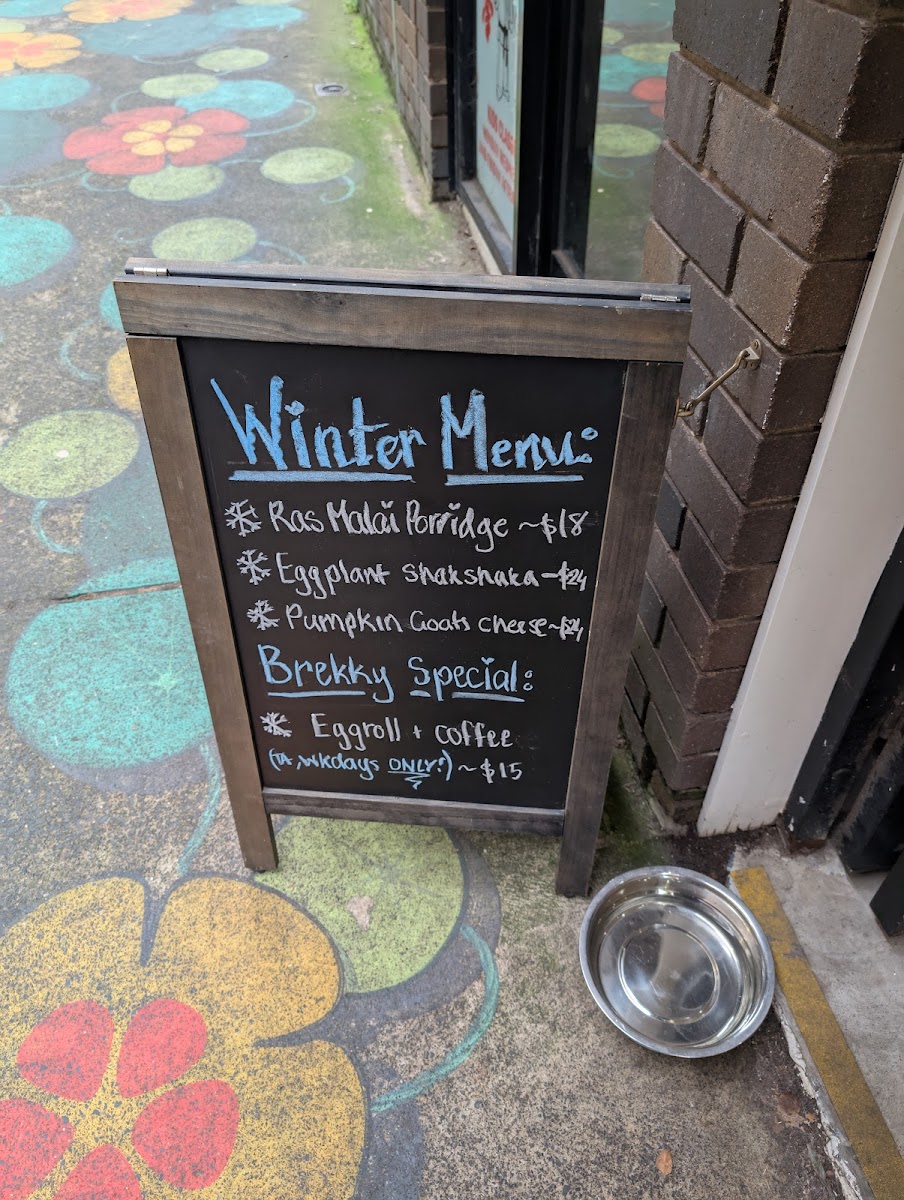 Winter Menu:
Ras Malai Porridge ~$18
Eggplant shakshaka-$24
Pumpkin Goats cheese~$24
Brekky Special:
Eggroll + coffee
(TA, wkdays ONLY!) ~$15